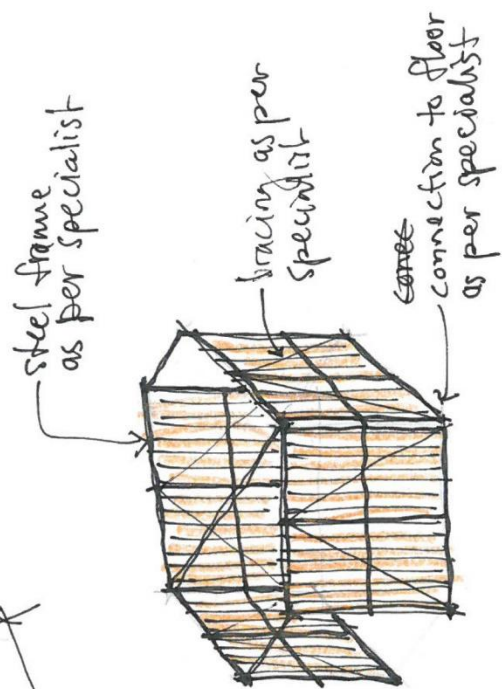 steel frame
as per specialist
bracing as per
specialist
connection to floor
as per specialist